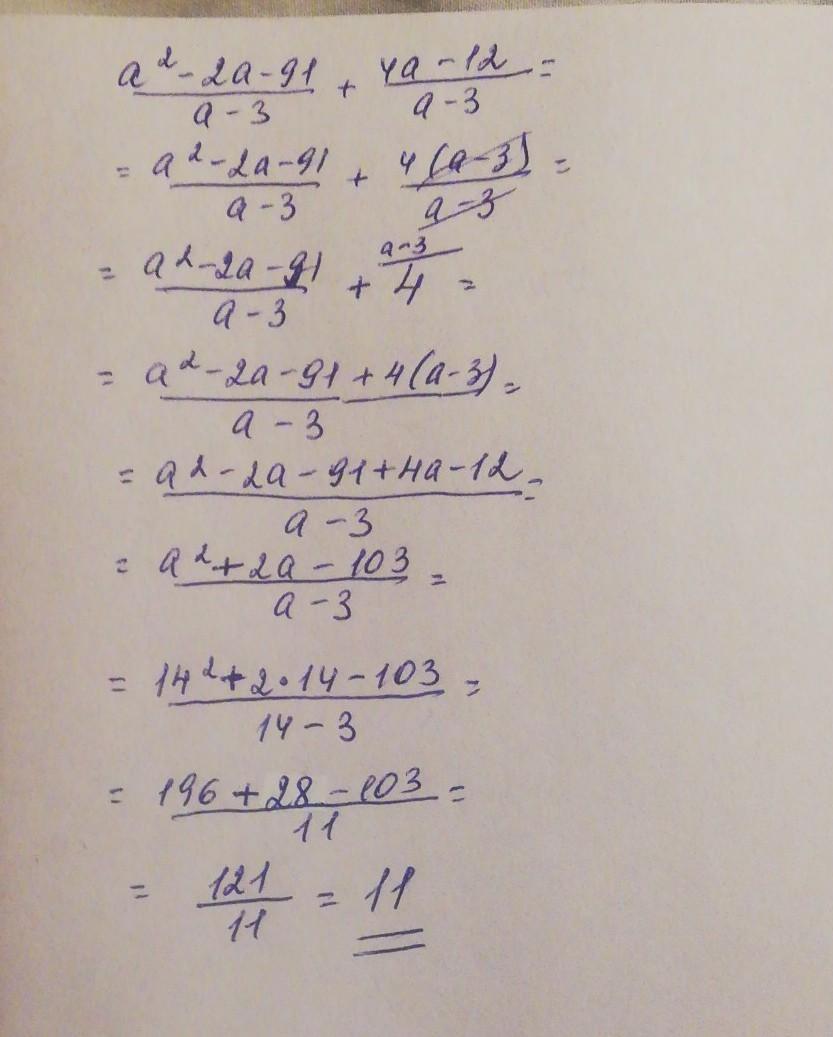 (a² - 2a - 91)/(a - 3) + (4a - 12)/(a - 3) =
= (a² - 2a - 91)/(a - 3) + 4(a - 3)/(a - 3) =
= (a² - 2a - 91)/(a - 3) + 4 ^(a - 3) =
= (a² - 2a - 91 + 4(a - 3))/(a - 3) =
= (a² - 2a - 91 + 4a - 12)/(a - 3) =
= (a² + 2a - 103)/(a - 3) =
= (14² + 2·14 - 103)/(14 - 3) =
= (196 + 28 - 103)/11 =
= 121/11 = 11